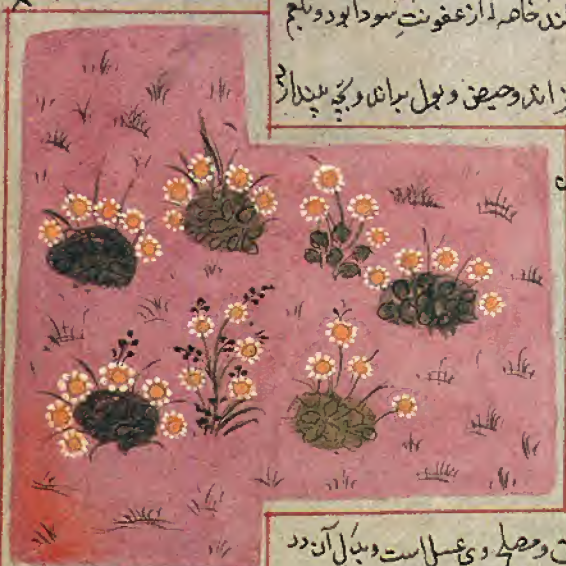 خاصه از عفونت سودا بود و بلغم
اند و حیض و بول براند و بچه بیندازد
و مصلح وی عسل است و بدل آن در